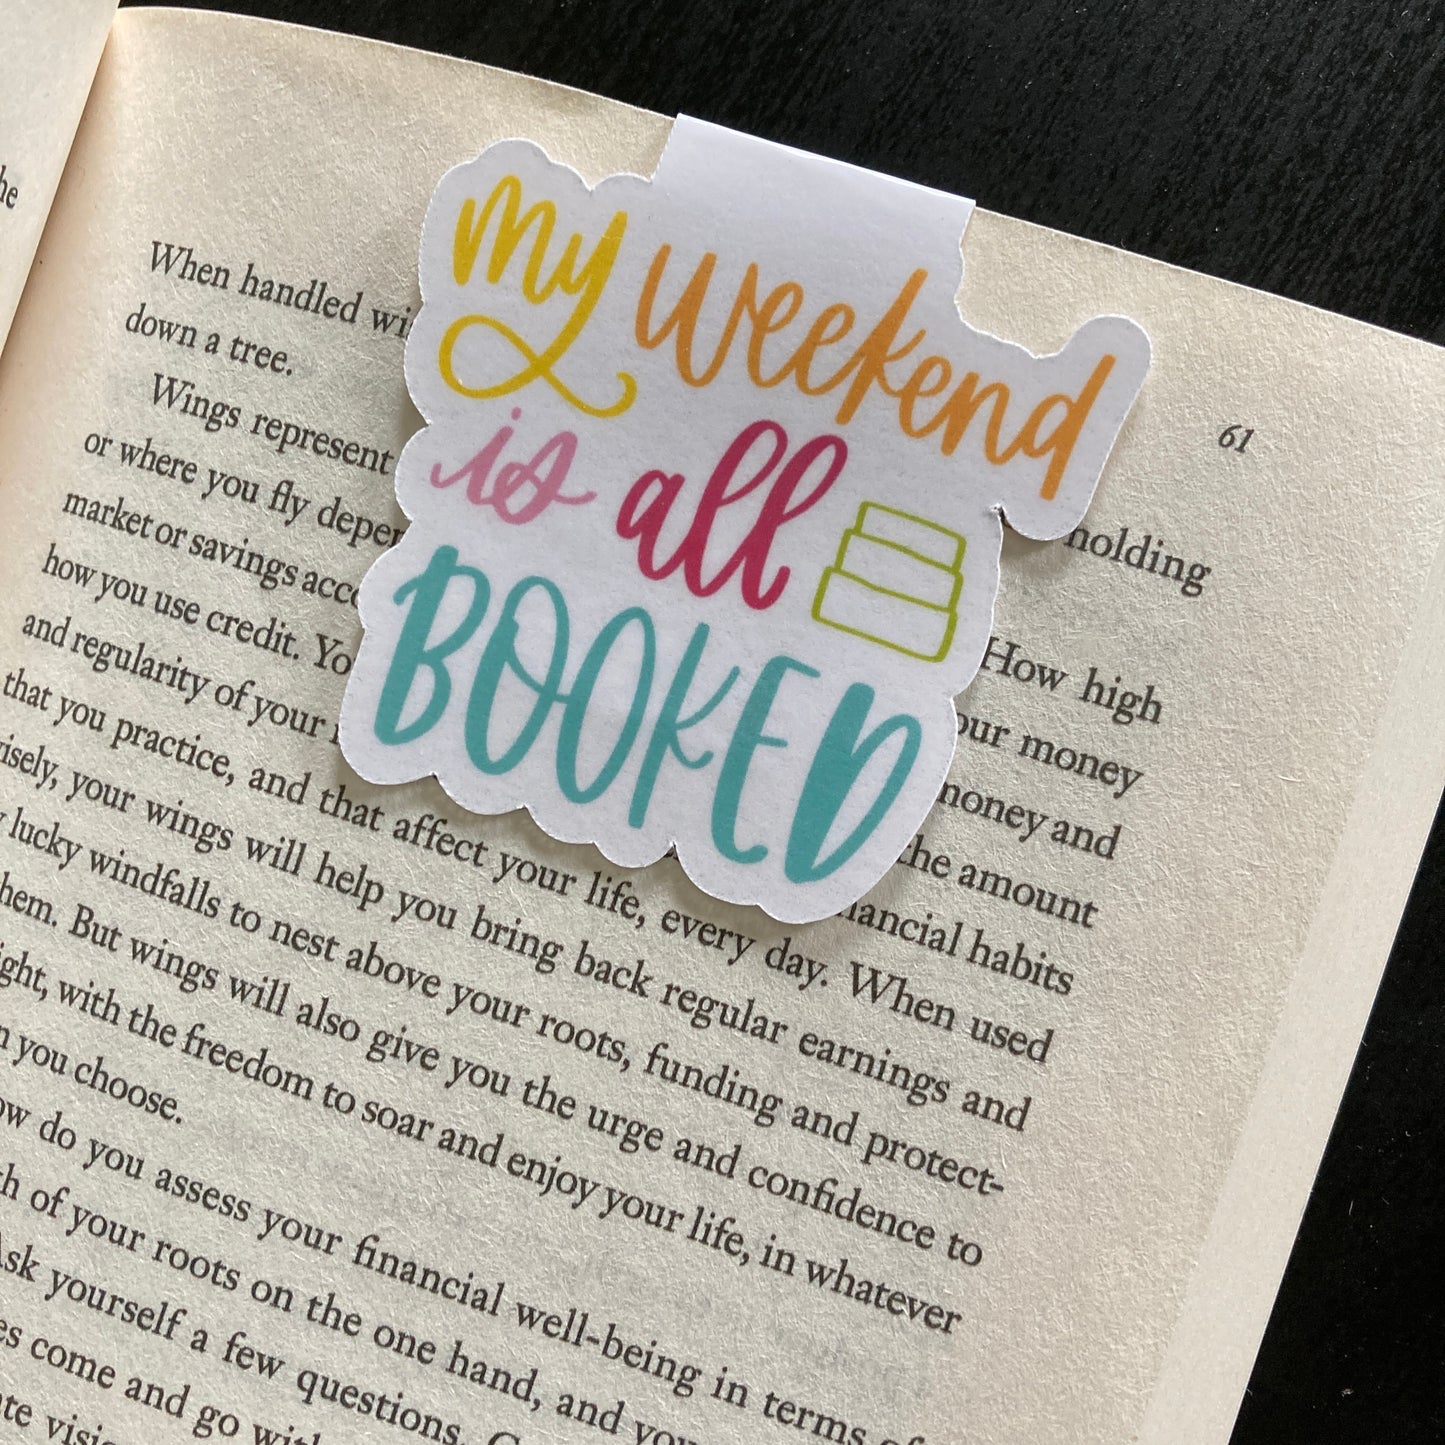 my weekend
is all
BOOKED
61
When handled holding
down a tree.
Wings represent How high
or where you fly our money
market or savings money and
how you use credit. the amount
and regularity of your habits
that you practice, and that affect your life, every day. When used
your wings will help you bring back regular earnings and
lucky windfalls to nest above your roots, funding and protect-
them. But wings will also give you the urge and confidence to
with the freedom to soar and enjoy your life, in whatever
you choose.
do you assess your financial well-being in terms of
of your roots on the one hand, and
Ask yourself a few questions.
come and go